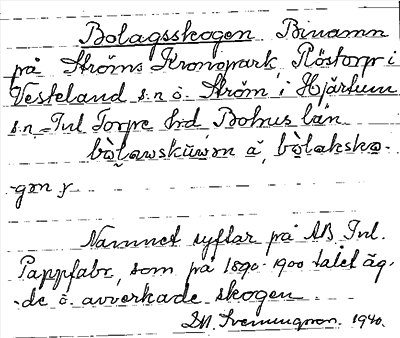 Bolagsskogen Binamn
på Ströms Kronopark, Röstorp i
Vesteland s.n o. Ström i Hjärtum
s.n. Inl. Torpe hd. Bohus län
bòlawskūwn ă, bòlaksko-
-gən y
Namnet syftar på AB Inl.
Pappfabr, som på 1890-1900 talet äg-
-de o. avverkade skogen
D.A. Svenungson. 1940.